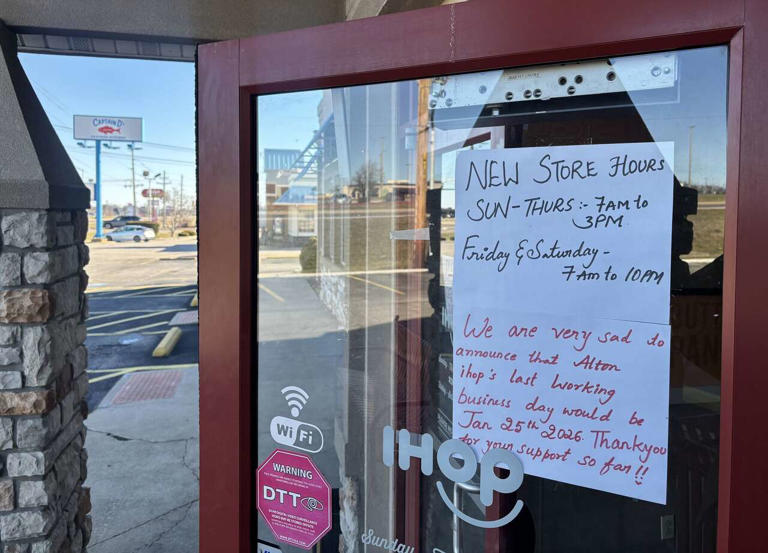 CAPTAIN D'S
NEW STORE HOURS
SUN-THURS:- 7AM to
3PM
Friday & Saturday -
7Am to 10PM
We are very sad to
announce that Alton
ihop's last working
business day would be
Jan 25th 2026. Thankyou
for your support so far!!
WiFi
IHOP
WARNING
DTT
Sunday